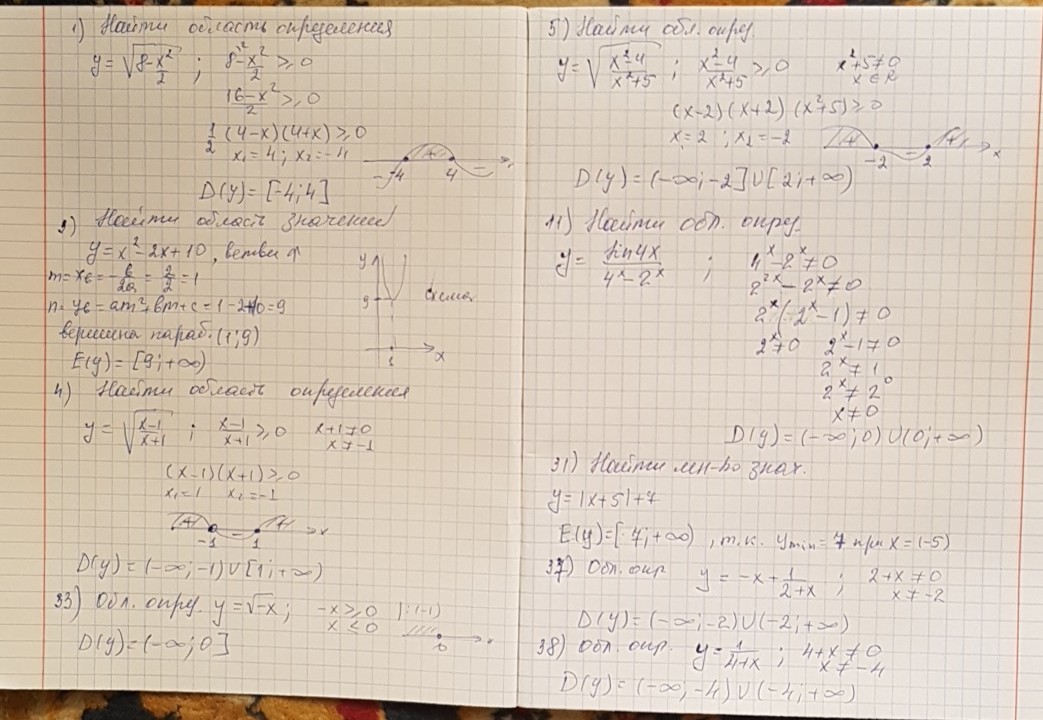 1) Найти область определения
y = √(8 - x²/2) ; 8 - x²/2 ⩾ 0
(16 - x²)/2 ⩾ 0
1/2 (4-x)(4+x) ⩾ 0
x₁ = 4 ; x₂ = -4
- -4 + 4 - x
D(y) = [-4; 4]
2) Найти область значений
y = x² - 2x + 10 , ветви ↑
m = xв = -b/2a = 2/2 = 1
n = yв = am² + bm + c = 1 - 2 + 10 = 9
вершина параб. (1; 9)
E(y) = [9; +∞)
y 9 1 x схема
4) Найти область определения
y = √((x-1)/(x+1)) ; (x-1)/(x+1) ⩾ 0 x+1 ≠ 0
x ≠ -1
(x-1)(x+1) ⩾ 0
x₁ = 1 x₂ = -1
+ -1 - 1 + x
D(y) = (-∞; -1) ∪ [1; +∞)
33) Обл. опред. y = √-x ; -x ⩾ 0 |:(-1)
x ⩽ 0
0 x
D(y) = (-∞; 0]
5) Найти обл. опред.
y = √((x²-4)/(x²+5)) ; (x²-4)/(x²+5) ⩾ 0 x²+5 ≠ 0
x ∈ R
(x-2)(x+2)(x²+5) ⩾ 0
x₁ = 2 ; x₂ = -2
+ -2 - 2 + x
D(y) = (-∞; -2] ∪ [2; +∞)
11) Найти обл. опред.
y = sin4x/(4ˣ - 2ˣ) ; 4ˣ - 2ˣ ≠ 0
2²ˣ - 2ˣ ≠ 0
2ˣ(2ˣ - 1) ≠ 0
2ˣ ≠ 0 2ˣ - 1 ≠ 0
2ˣ ≠ 1
2ˣ ≠ 2⁰
x ≠ 0
D(y) = (-∞; 0) ∪ (0; +∞)
31) Найти мн-во знач.
y = |x+5| + 7
E(y) = [7; +∞) , т.к. ymin = 7 при x = (-5)
37) Обл. опр y = -x + 1/(2+x) ; 2+x ≠ 0
x ≠ -2
D(y) = (-∞; -2) ∪ (-2; +∞)
38) Обл. опр. y = 1/(4+x) ; 4+x ≠ 0
x ≠ -4
D(y) = (-∞; -4) ∪ (-4; +∞)